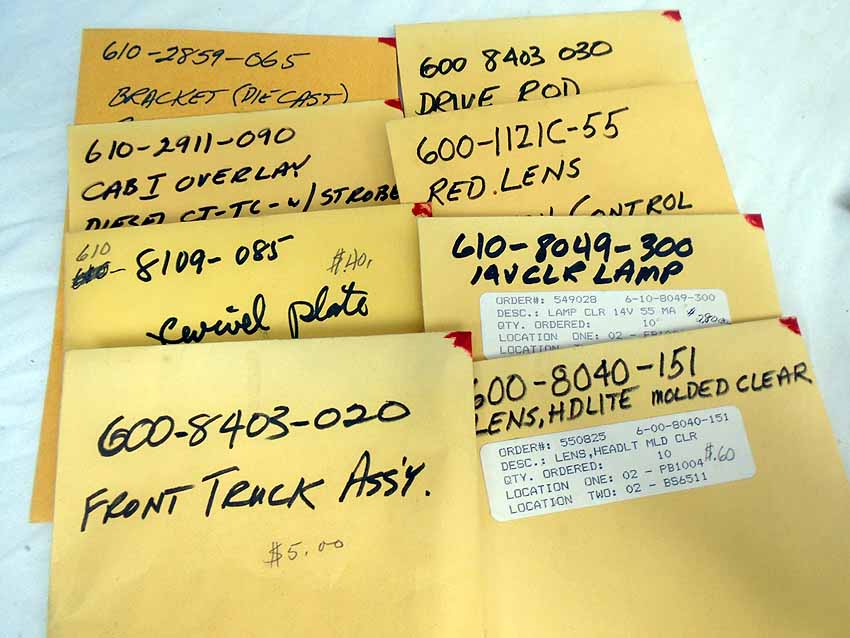 610-2859-065
BRACKET (DIECAST)
610-2911-090
CAB I OVERLAY
DIESEL CT-TC-W/STROBE
610
8109-085
$.40.
swivel plate
600-8403-020
FRONT TRUCK ASS'Y.
$5.00
600 8403 030
DRIVE ROD
600-1121C-55
RED.LENS
CONTROL
610-8049-300
14V CLR LAMP
ORDER#: 549028 6-10-8049-300
DESC.: LAMP CLR 14V 55 MA
QTY. ORDERED: 10
LOCATION ONE: 02 -
LOCATION
600-8040-151
LENS, HDLITE MOLDED CLEAR
ORDER#: 550825 6-00-8040-151
DESC.: LENS,HEADLT MLD CLR
QTY. ORDERED: 10 $.60
LOCATION ONE: 02 - PB1004
LOCATION TWO: 02 - BS6511